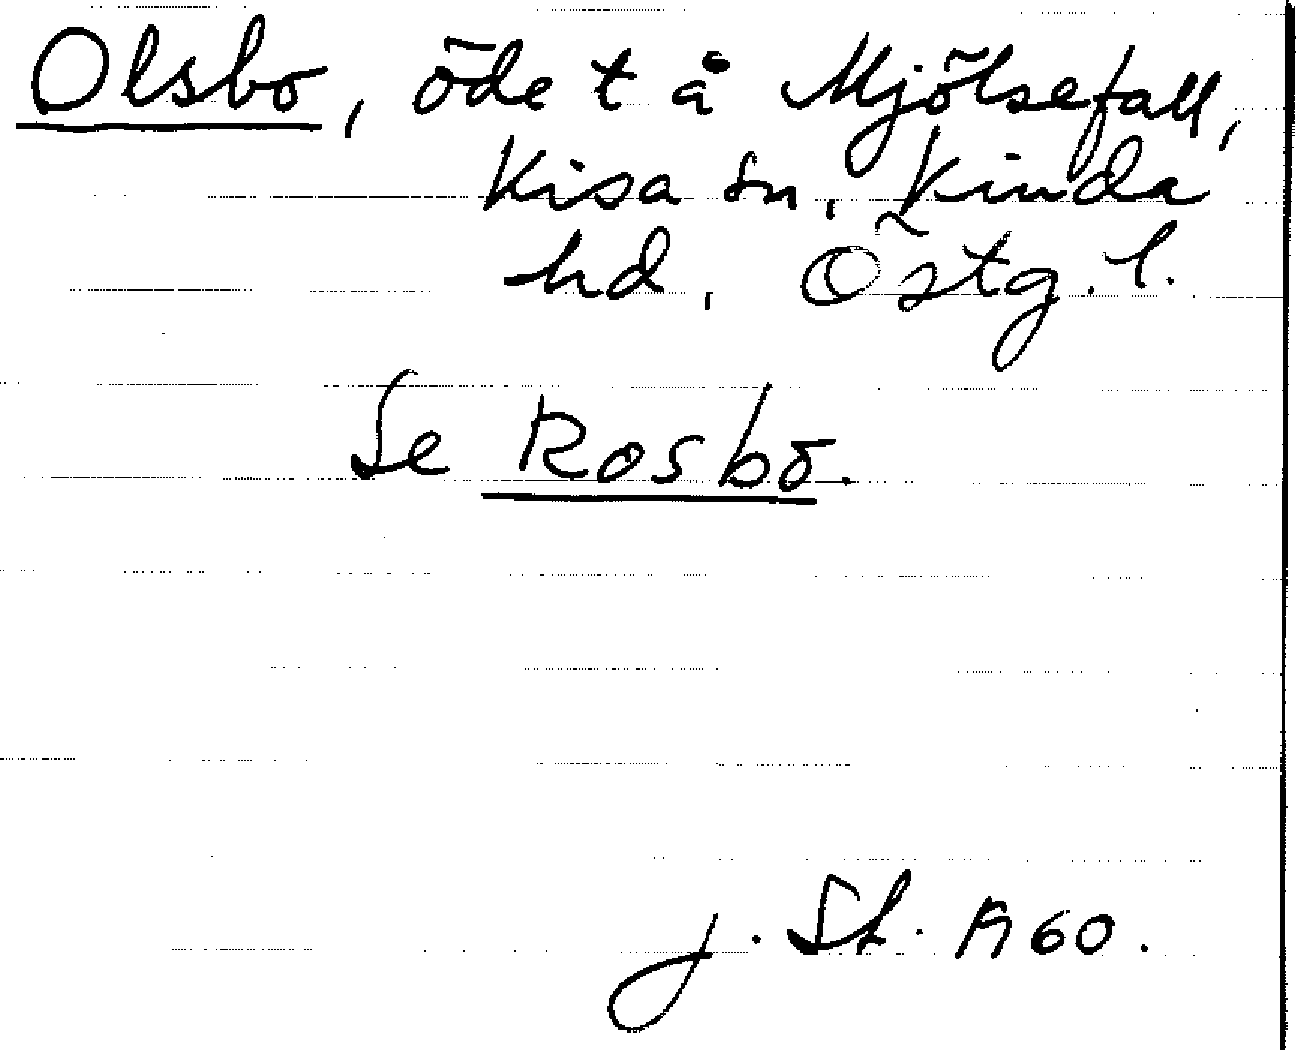 Olsbo, öde t å Mjölsefall,
Kisa sn, Kinda
hd, Östg. l.
Se Rosbo.
J. St. 1960.